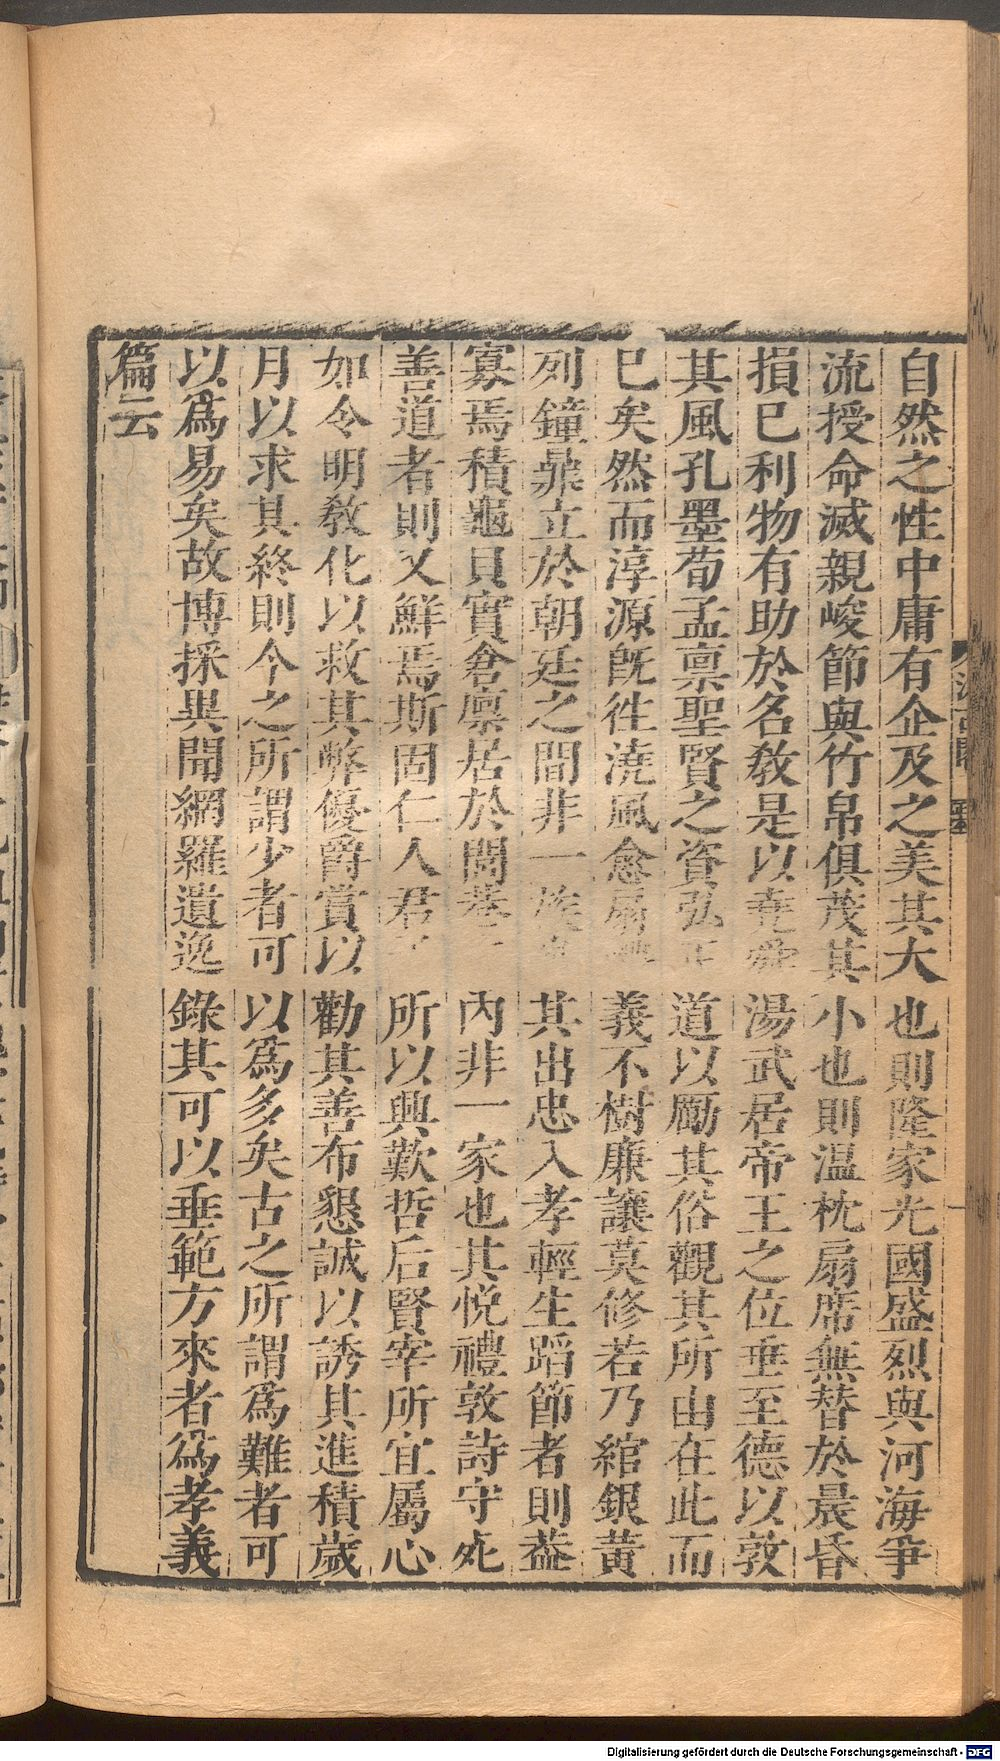 自然之性中庸有企及之美其大也則隆家光國盛烈與河海爭
流授命滅親峻節與竹帛俱茂其小也則溫枕扇席無替於晨昏
損巳利物有助於名敎是以堯舜湯武居帝王之位垂至德以敦
其風孔墨荀孟稟聖賢之資弘正道以勵其俗觀其所由在此而
巳矣然而淳源旣徃澆風愈扇 義不樹廉讓莫修若乃綰銀黃
列鐘鼎立於朝廷之間非一族 其出忠入孝輕生蹈節者則葢
寡焉積龜貝實倉廩居於閭巷 內非一家也其悅禮敦詩守死
善道者則又鮮焉斯固仁人君子所以興歎哲后賢宰所宜屬心
如令明敎化以救其弊優爵賞以勸其善布懇誠以誘其進積歲
月以求其終則今之所謂少者可以爲多矣古之所謂爲難者可
以爲易矣故博採異聞網羅遺逸錄其可以垂範方來者爲孝義
篇云
Digitalisierung gefördert durch die Deutsche Forschungsgemeinschaft - DFG